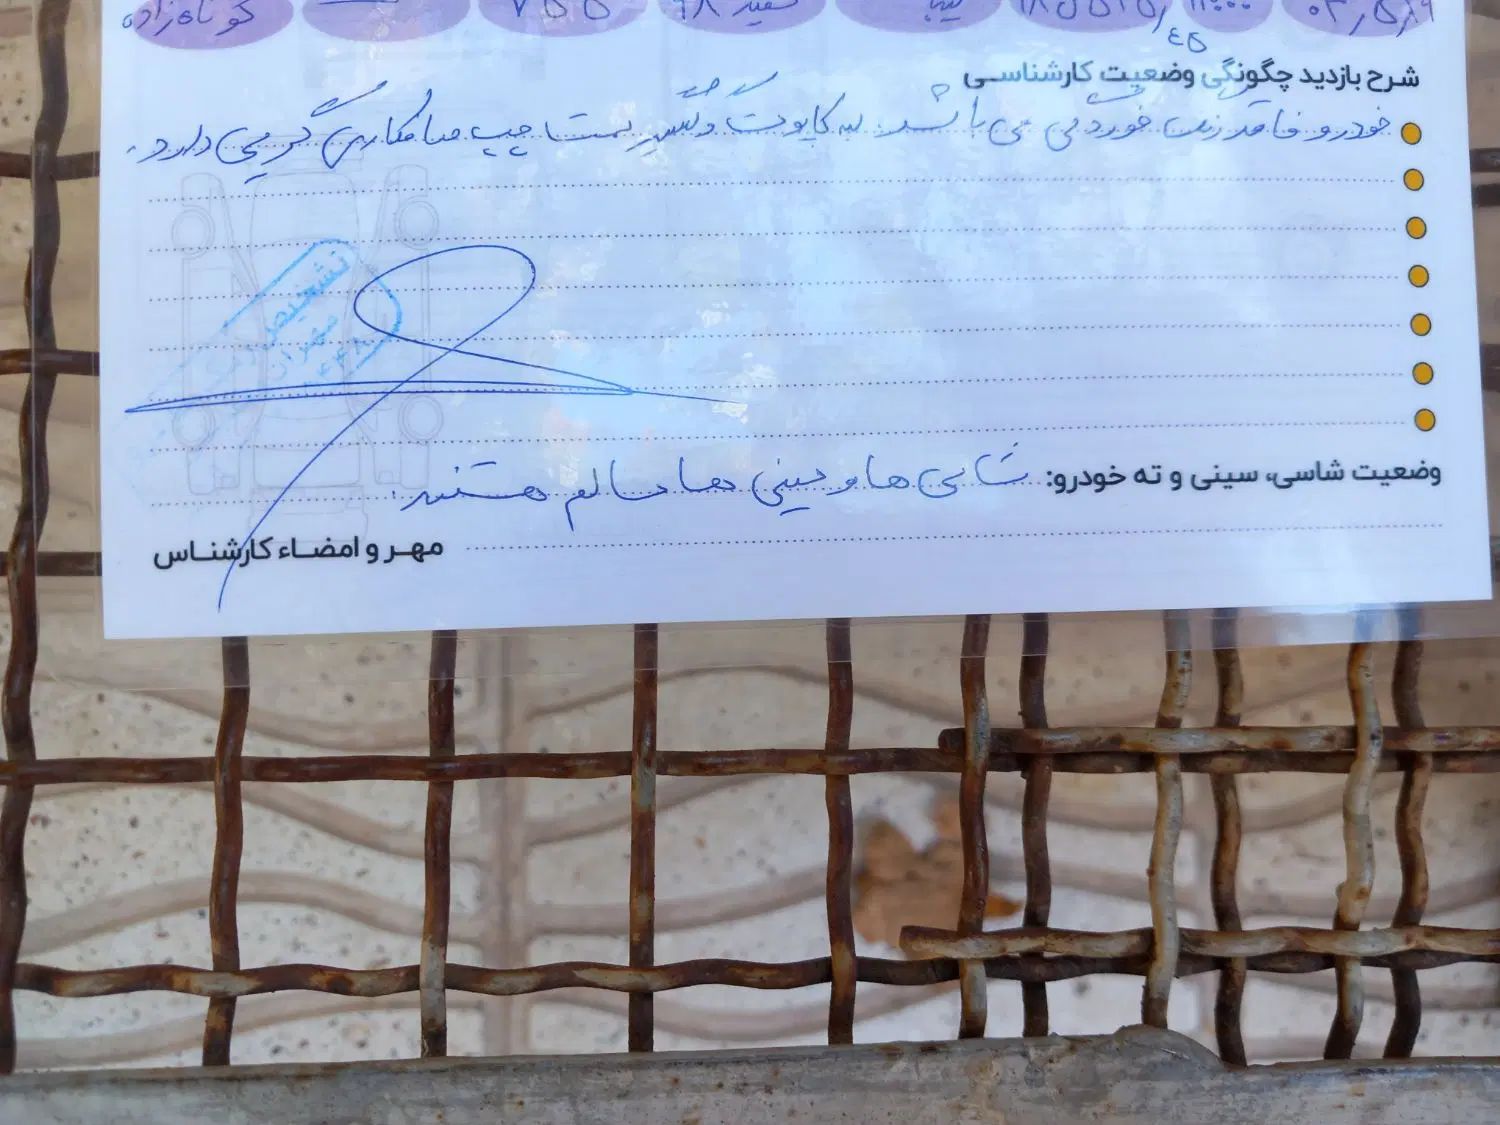 کوتاه زاده ۷۵۵ سفید ۹۸ تیبا
۴۵
شرح بازدید چگونگی وضعیت کارشناسی
خودرو فاقد رنگ خوردگی می باشد. لبه کاپوت و گلگیر سمت چپ صافکاری گرمی دارد.
تشخیص رنگ
تهران
وضعیت شاسی، سینی و ته خودرو: شاسی ها و سینی ها سالم هستند.
مهر و امضاء کارشناس